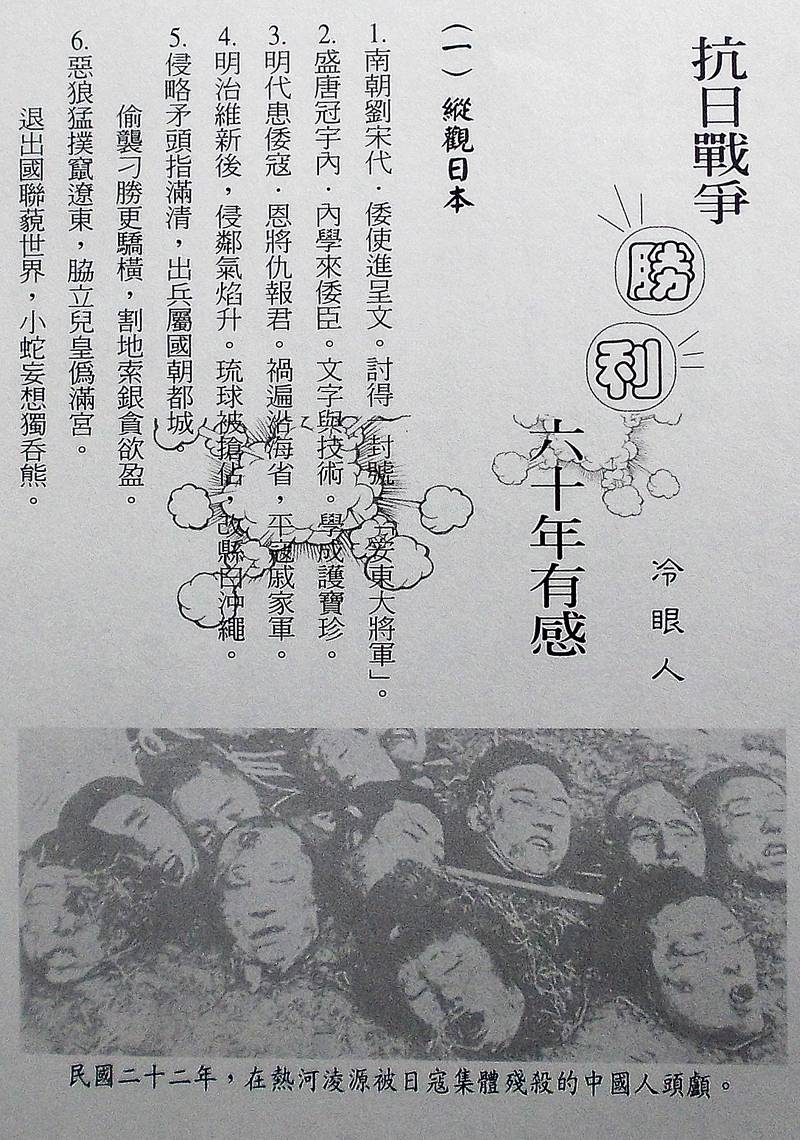 抗日戰爭
勝利
六十年有感
冷眼人
(一) 縱觀日本
1. 南朝劉宋代．倭使進呈文。討得一封號「安東大將軍」。
2. 盛唐冠宇內．內學來倭臣。文字與技術。學成護寶珍。
3. 明代患倭寇．恩將仇報君。禍遍沿海省，平寇戚家軍。
4. 明治維新後，侵鄰氣焰升。琉球被搶佔，改縣曰沖繩。
5. 侵略矛頭指滿清，出兵屬國朝都城。
偷襲刁勝更驕橫，割地索銀貪欲盈。
6. 惡狼猛撲竄遼東，脇立兒皇偽滿宮。
退出國聯藐世界，小蛇妄想獨吞熊。
民國二十二年，在熱河淩源被日寇集體殘殺的中國人頭顱。